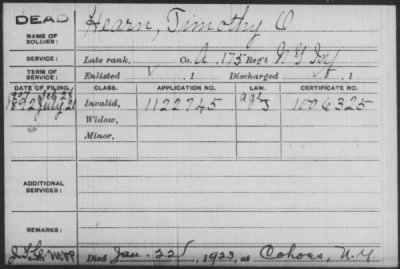 DEAD Hearn, Timothy O
NAME OF SOLDIER:
SERVICE: Late rank, Co. A. 175 Reg't N Y Inf
TERM OF SERVICE: Enlisted , 1 Discharged , 1
DATE OF FILING. CLASS. APPLICATION NO. LAW. CERTIFICATE NO.
1907 Feb 24 age
1892 July 2 Invalid, 1122745 J 1096325
Widow,
Minor,
ADDITIONAL SERVICES:
REMARKS:
Died Jan. 22, 1923, at Cohoes, N.Y.